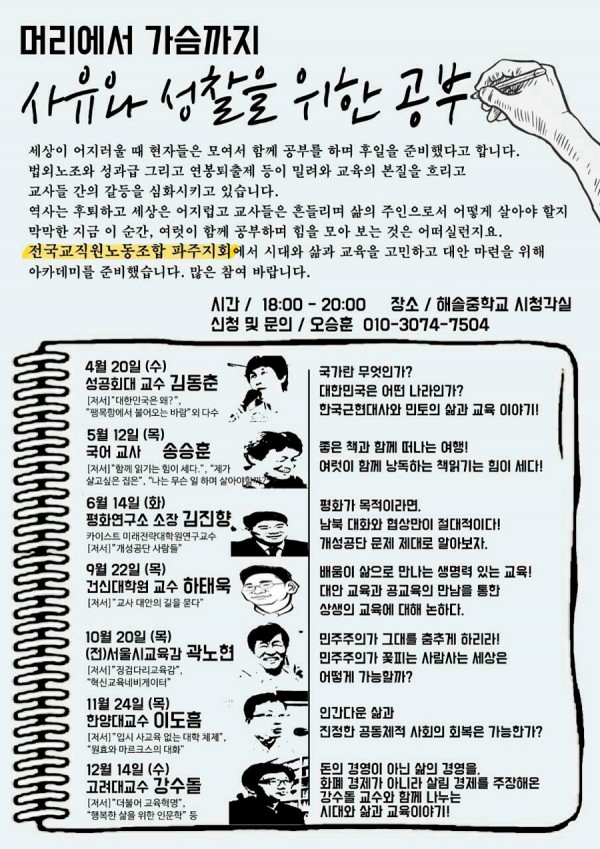 머리에서 가슴까지
사유와 성찰을 위한 공부
세상이 어지러울 때 현자들은 모여서 함께 공부를 하며 후일을 준비했다고 합니다.
법외노조와 성과급 그리고 연봉퇴출제 등이 밀려와 교육의 본질을 흐리고
교사들 간의 갈등을 심화시키고 있습니다.
역사는 후퇴하고 세상은 어지럽고 교사들은 흔들리며 삶의 주인으로서 어떻게 살아야 할지
막막한 지금 이 순간, 여럿이 함께 공부하며 힘을 모아 보는 것은 어떠실런지요.
전국교직원노동조합 파주지회에서 시대와 삶과 교육을 고민하고 대안 마련을 위해
아카데미를 준비했습니다. 많은 참여 바랍니다.
시간 / 18:00 - 20:00 장소 / 해솔중학교 시청각실
신청 및 문의 / 오승훈 010-3074-7504
4월 20일 (수)
성공회대 교수 김동춘
[저서]"대한민국은 왜?",
"팽목항에서 불어오는 바람"외 다수
국가란 무엇인가?
대한민국은 어떤 나라인가?
한국근현대사와 민토의 삶과 교육 이야기!
5월 12일 (목)
국어 교사 송승훈
[저서]"함께 읽기는 힘이 세다.", "제가
살고싶은 집은", "나는 무슨 일 하며 살아야할까?"
좋은 책과 함께 떠나는 여행!
여럿이 함께 낭독하는 책읽기는 힘이 세다!
6월 14일 (화)
평화연구소 소장 김진향
카이스트 미래전략대학원연구교수
[저서]"개성공단 사람들"
평화가 목적이라면.
남북 대화와 협상만이 절대적이다!
개성공단 문제 제대로 알아보자.
9월 22일 (목)
건신대학원 교수 하태욱
[저서]"교사 대안의 길을 묻다"
배움이 삶으로 만나는 생명력 있는 교육!
대안 교육과 공교육의 만남을 통한
상생의 교육에 대해 논하다.
10월 20일 (목)
(전)서울시교육감 곽노현
[저서]"징검다리교육감",
"혁신교육네비게이터"
민주주의가 그대를 춤추게 하리라!
민주주의가 꽃피는 사람사는 세상은
어떻게 가능할까?
11월 24일 (목)
한양대교수 이도흠
[저서]"입시 사교육 없는 대학 체제",
"원효와 마르크스의 대화"
인간다운 삶과
진정한 공동체적 사회의 회복은 가능한가?
12월 14일 (수)
고려대교수 강수돌
[저서]"더불어 교육혁명",
"행복한 삶을 위한 인문학" 등
돈의 경영이 아닌 삶의 경영을,
화폐 경제가 아니라 살림 경제를 주장해온
강수돌 교수와 함께 나누는
시대와 삶과 교육이야기!